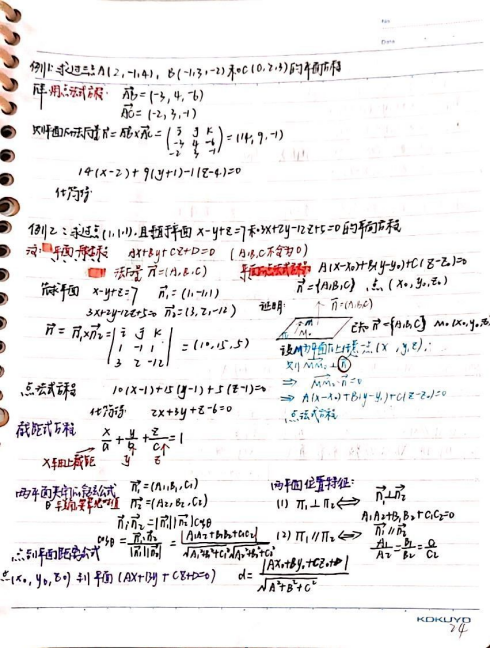 例1: 求过三点A(2,-1,4), B(-1,3,-2)和C(0,2,3)的平面方程
解 用点法式方程: AB=(-3,4,-6)
AC=(-2,3,-1)
则平面的法向量n=AB×AC=
| i j k |
| -3 4 -6 |
| -2 3 -1 |
=(14,9,-1)
14(x-2)+9(y+1)-1(z-4)=0
化简得
例2: 求过点(1,1,1), 且垂直平面 x-y+z=7和3x+2y-12z+5=0的平面方程
平面一般式 Ax+By+Cz+D=0 (A,B,C不全为0)
法向量 n=(A,B,C)
平面点法式方程 A(x-x₀)+B(y-y₀)+C(z-z₀)=0
n={A,B,C}, 点(x₀,y₀,z₀)
平面 x-y+z=7 n₁=(1,-1,1)
3x+2y-12z+5=0 n₂=(3,2,-12)
n=n₁×n₂=
| i j k |
| 1 -1 1 |
| 3 2 -12 |
=(10,15,5)
证明:
n=(A,B,C)
M
M₀
π
已知 n={A,B,C} M₀(x₀,y₀,z
设M为平面π上任意一点(x,y,z),
则 MM₀⊥n
⇒ MM₀·n=0
⇒ A(x-x₀)+B(y-y₀)+C(z-z₀)=0
点法式方程
点法式方程 10(x-1)+15(y-1)+5(z-1)=0
化简得 2x+3y+z-6=0
截距式方程 x/a+y/b+z/c=1
x轴上截距 y z
两平面夹角公式 n₁=(A₁,B₁,C₁)
n₂=(A₂,B₂,C₂)
n₁·n₂=|n₁||n₂|cosθ
cosθ=n₁·n₂/|n₁||n₂|=|A₁A₂+B₁B₂+C₁C₂|/√A₁²+B₁²+C₁²√A₂²+B₂²+C₂²
两平面位置特征:
(1) π₁⊥π₂⇔n₁⊥n₂
A₁A₂+B₁B₂+C₁C₂=0
(2) π₁∥π₂⇔n₁∥n₂
A₁/A₂=B₁/B₂=C₁/C₂
点到平面距离公式
点(x₀,y₀,z₀)到平面(Ax+By+Cz+D=0) d=|Ax₀+By₀+Cz₀+D|/√A²+B²+C²
KOKUYO
24